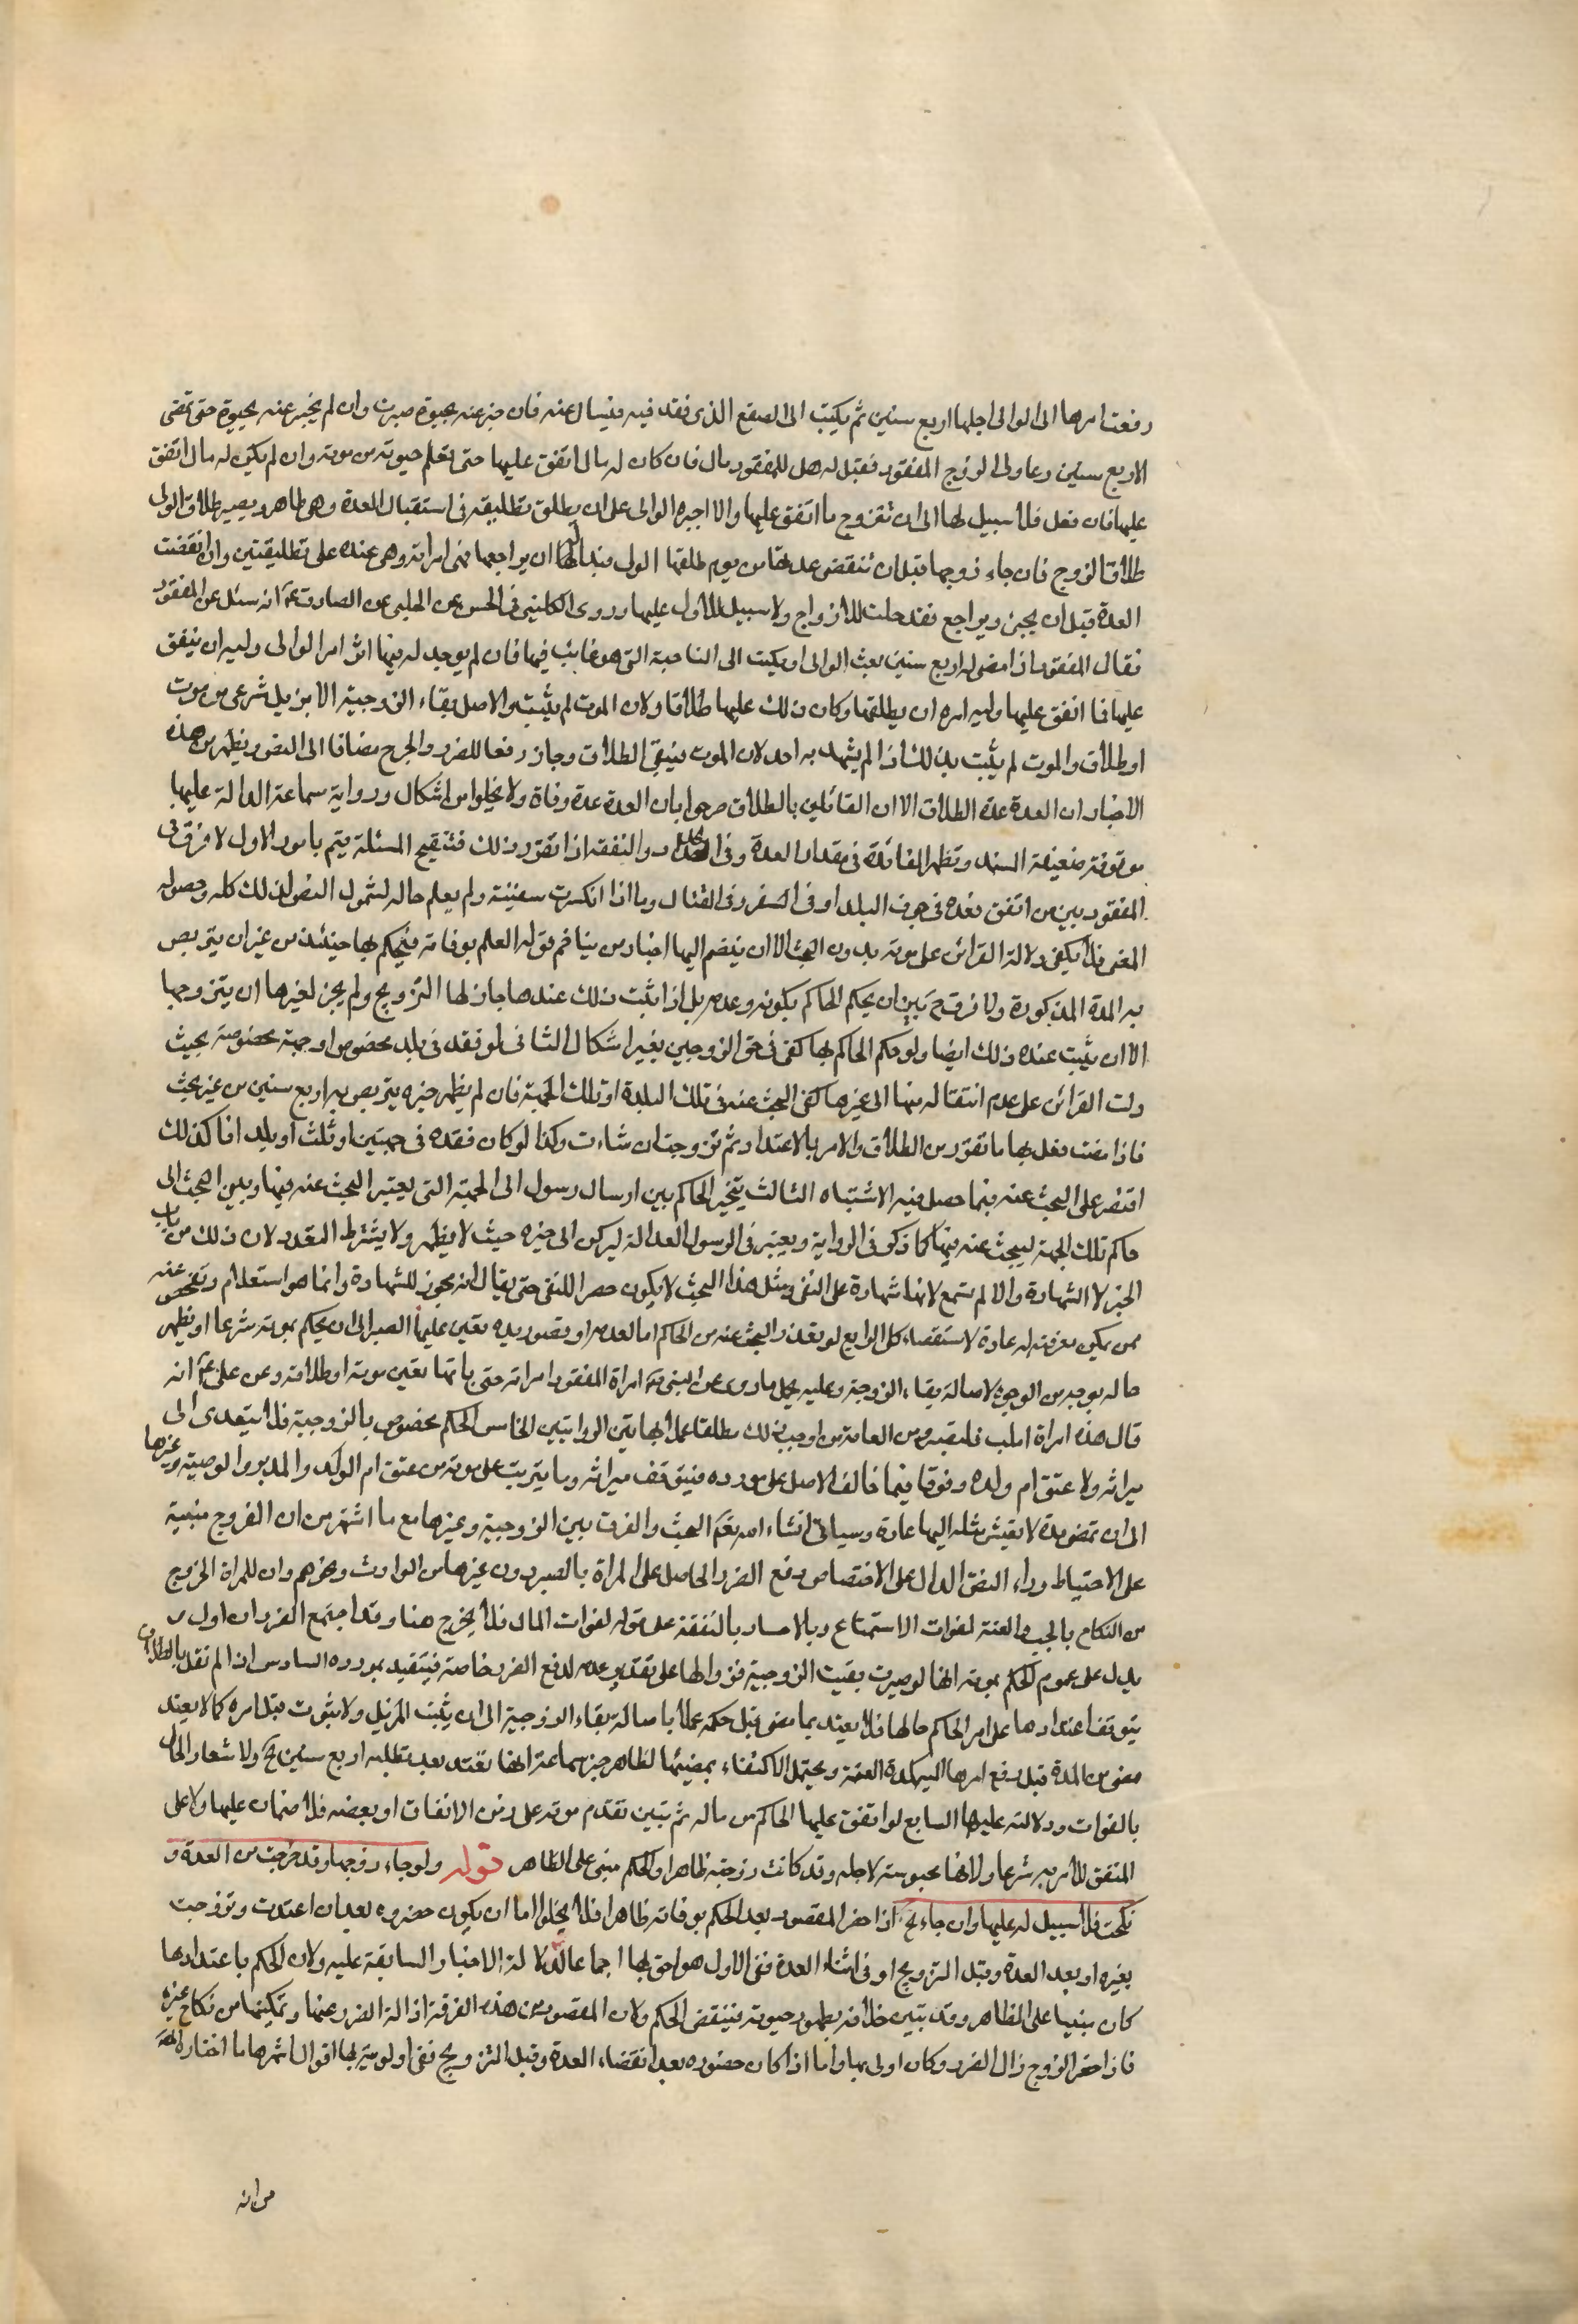 رفعت امرها الى الوالى اجلها اربع سنين ثم يكتب الى الصقع الذى فقد فيه فيسال عنه فان خبر عنه بحيوة صبرت وان لم يخبر عنه بحيوة حتى تمضى
الاربع سنين دعا ولى الزوج المفقود فقيل له هل للمفقود مال فان كان له مال انفق عليها حتى يعلم حيوته من موته وان لم يكن له مال انفق
عليها فان فعل فلا سبيل لها الى ان تتزوج ما انفق عليها والا اجبره الوالى على ان يطلق تطليقه فى استقبال العدة وهى طاهر ويصير طلاق الولى
طلاق الزوج فان جاء زوجها قبل ان تنقضى عدتها من يوم طلقها الولى فبدا له ان يراجعها فهى امراته وهى عنده على تطليقتين وان انقضت
العدة قبل ان يجئ ويراجع فقد حلت للازواج ولا سبيل للاول عليها وروى الكلينى فى الحسن عن الحلبى عن الصادق ع انه سئل عن المفقود
فقال المفقود اذا مضى له اربع سنين بعث الوالى او يكتب الى الناحية التى هو غائب فيها فان لم يوجد له فيها اثر امر الوالى وليه ان ينفق
عليها فما انفق عليها وليه امره ان يطلقها وكان ذلك عليها طلاقا ولان الموت لم يثبت والاصل بقاء الزوجية الا بمزيل شرعى من موت
او طلاق والموت لم يثبت بذلك اذا لم يشهد به احد لان الموت فيبقى الطلاق وجاز رفعا للضرر والحرج مضافا الى النص ويظهر من هذه
الاخبار ان العدة عدة الطلاق الا ان القائلين بالطلاق صرحوا بان العدة عدة وفاة ولا يخلوا من اشكال ورواية سماعة الدالة عليها
موقوفة ضعيفة السند وتظهر الفائدة فى مقدار العدة وفى الحداد والنفقة اذا تقرر ذلك فتنقيح المسئلة يتم بامور الاول لا فرق فى
المفقود بين من اتفق فقده فى جوف البلد او فى السفر وفى القتال وما اذا انكسرت سفينته ولم يعلم حاله لشمول النص لذلك كله وحصول
المعنى فلا يكفى دلالة القرائن على موته بدون البحث الا ان ينضم اليها اخبار من يتاخم قوله العلم بوفاته فيحكم بها حينئذ من غير ان يتربص
به المدة المذكورة ولا فرق ح بين ان يحكم الحاكم بكونه وعدمه بل اذا ثبت ذلك عندها جاز لها التزويج ولم يجز لغيرها ان يتزوجها
الا ان يثبت عنده ذلك ايضا ولو حكم الحاكم بها كفى فى حق الزوجين بغير اشكال الثانى لو فقد فى بلد مخصوص او جهة مخصوصة بحيث
دلت القرائن على عدم انتقاله منها الى غيرها كفى البحث عنه فى تلك البلدة او تلك الجهة فان لم يظهر خبره يتربص به اربع سنين من غير بحث
فاذا مضت فعل بها ما تقرر من الطلاق والامر بالاعتداد ثم تزوجت ان شاءت وكذا لو كان فقده فى جهتين او ثلث او بلد اذا كذلك
اقتصر على البحث عنه فيما حصل فيه الاشتباه الثالث يتخير الحاكم بين ارسال رسول الى الجهة التى يعتبر البحث عنه فيها وبين البحث الى
حاكم تلك الجهة ليبحث عنه فيها كما ذكر فى الرواية ويعتبر فى الرسول العدالة ليركن الى خبره حيث لا يظهر ولا يشترط التعدد لان ذلك من باب
الخبر لا الشهادة والا لم تسمع لانها شهادة على النفى ومثل هذا البحث لا يكون حصرا للنفى حتى يقال انه مجوز للشهادة وانما هو استعلام وتفحص عنه
ممن يمكن معرفته له عادة لاستقصاء كل الرابع لو تعذر البحث عنه من الحاكم اما لعدمه او قصور يده تعين عليها الصبر الى ان يحكم بموته شرعا او يظهر
حاله بوجه من الوجوه لاصالة بقاء الزوجية وعليه يحمل ما روى عن النبى ص امراة المفقود امراته حتى ياتيها يقين موته او طلاقه وعن على ع انه
قال هذه امراة ابتليت فلتصبر ومن العامة من اوجب ذلك مطلقا عملا بهاتين الروايتين الخامس الحكم مخصوص بالزوجية فلا يتعدى الى
ميراثه ولا عتق ام ولده وقوفا فيما خالف الاصل على مورده فيتوقف ميراثه وما يترتب على موته من عتق ام الولد والمدبر والوصية وغيرها
الى ان تمضى مدة لا يعيش مثله اليها عادة وسياتى انشاء الله تعم البحث والفرق بين الزوجية وغيرها مع ما اشتهر من ان الفروج مبنية
على الاحتياط وراء النص الدال على الاختصاص دفع الضرر الحاصل على المراة بالصبر دون غيرها من الوارث ونحوهم وان للمراة الخروج
من النكاح بالجب والعنة لفوات الاستمتاع وبالاعسار بالنفقة على قول لفوات المال فلا يخرج هنا وقد اجتمع الضرران اولى
يدل على عموم الحكم بموته انها لو صيرت بقيت الزوجية فزوالها على تقدير عدمه لدفع الضرر خاصة فيتقيد بمورده السادس اذا لم نقل بالطلاق
يتوقف اعتدادها على امر الحاكم حالها فلا يعتد بما مضى قبل حكمه عملا باصالة بقاء الزوجية الى ان يثبت المزيل ولا ثبوت قبل امره كما لا يعتد
مضى من المدة قبل رفع امرها اليه كمدة العنة ويحتمل الاكتفاء بمضيها لظاهر خبر سماعة انها تعتد بعد تطلبه اربع سنين ولاشعار الحال
بالفوات ودلالته عليها السابع لو انفق عليها الحاكم من ماله ثم تبين تقدم موته على زمن الانفاق او بعضه فلا ضمان عليها ولا على
المنفق للامر به شرعا ولانها محبوسة لاجله وقد كانت زوجته ظاهرا والحكم مبنى على الظاهر قوله ولو جاء زوجها وقد خرجت من العدة و
نكحت فلا سبيل له عليها وان جاء الخ اذا حضر المفقود بعد الحكم بوفاته ظاهرا فلا يخلوا اما ان يكون حضوره بعد ان اعتدت وتزوجت
بغيره او بعد العدة وقبل التزويج او فى اثناء العدة ففى الاول هو احق بها اجماعا لدلالة الاخبار السابقة عليه ولان الحكم باعتدادها
كان مبنيا على الظاهر وقد تبين خلافه بظهور حيوته فينتقض الحكم ولان المقصود من هذه الفرقة ازالة الضرر عنها وتمكينها من نكاح غيره
فاذا حضر الزوج زال الضرر وكان اولى بها واما اذا كان حضوره بعد انقضاء العدة وقبل التزويج ففى اولويته لها اقوال اشهرها ما اختاره المص
من انه